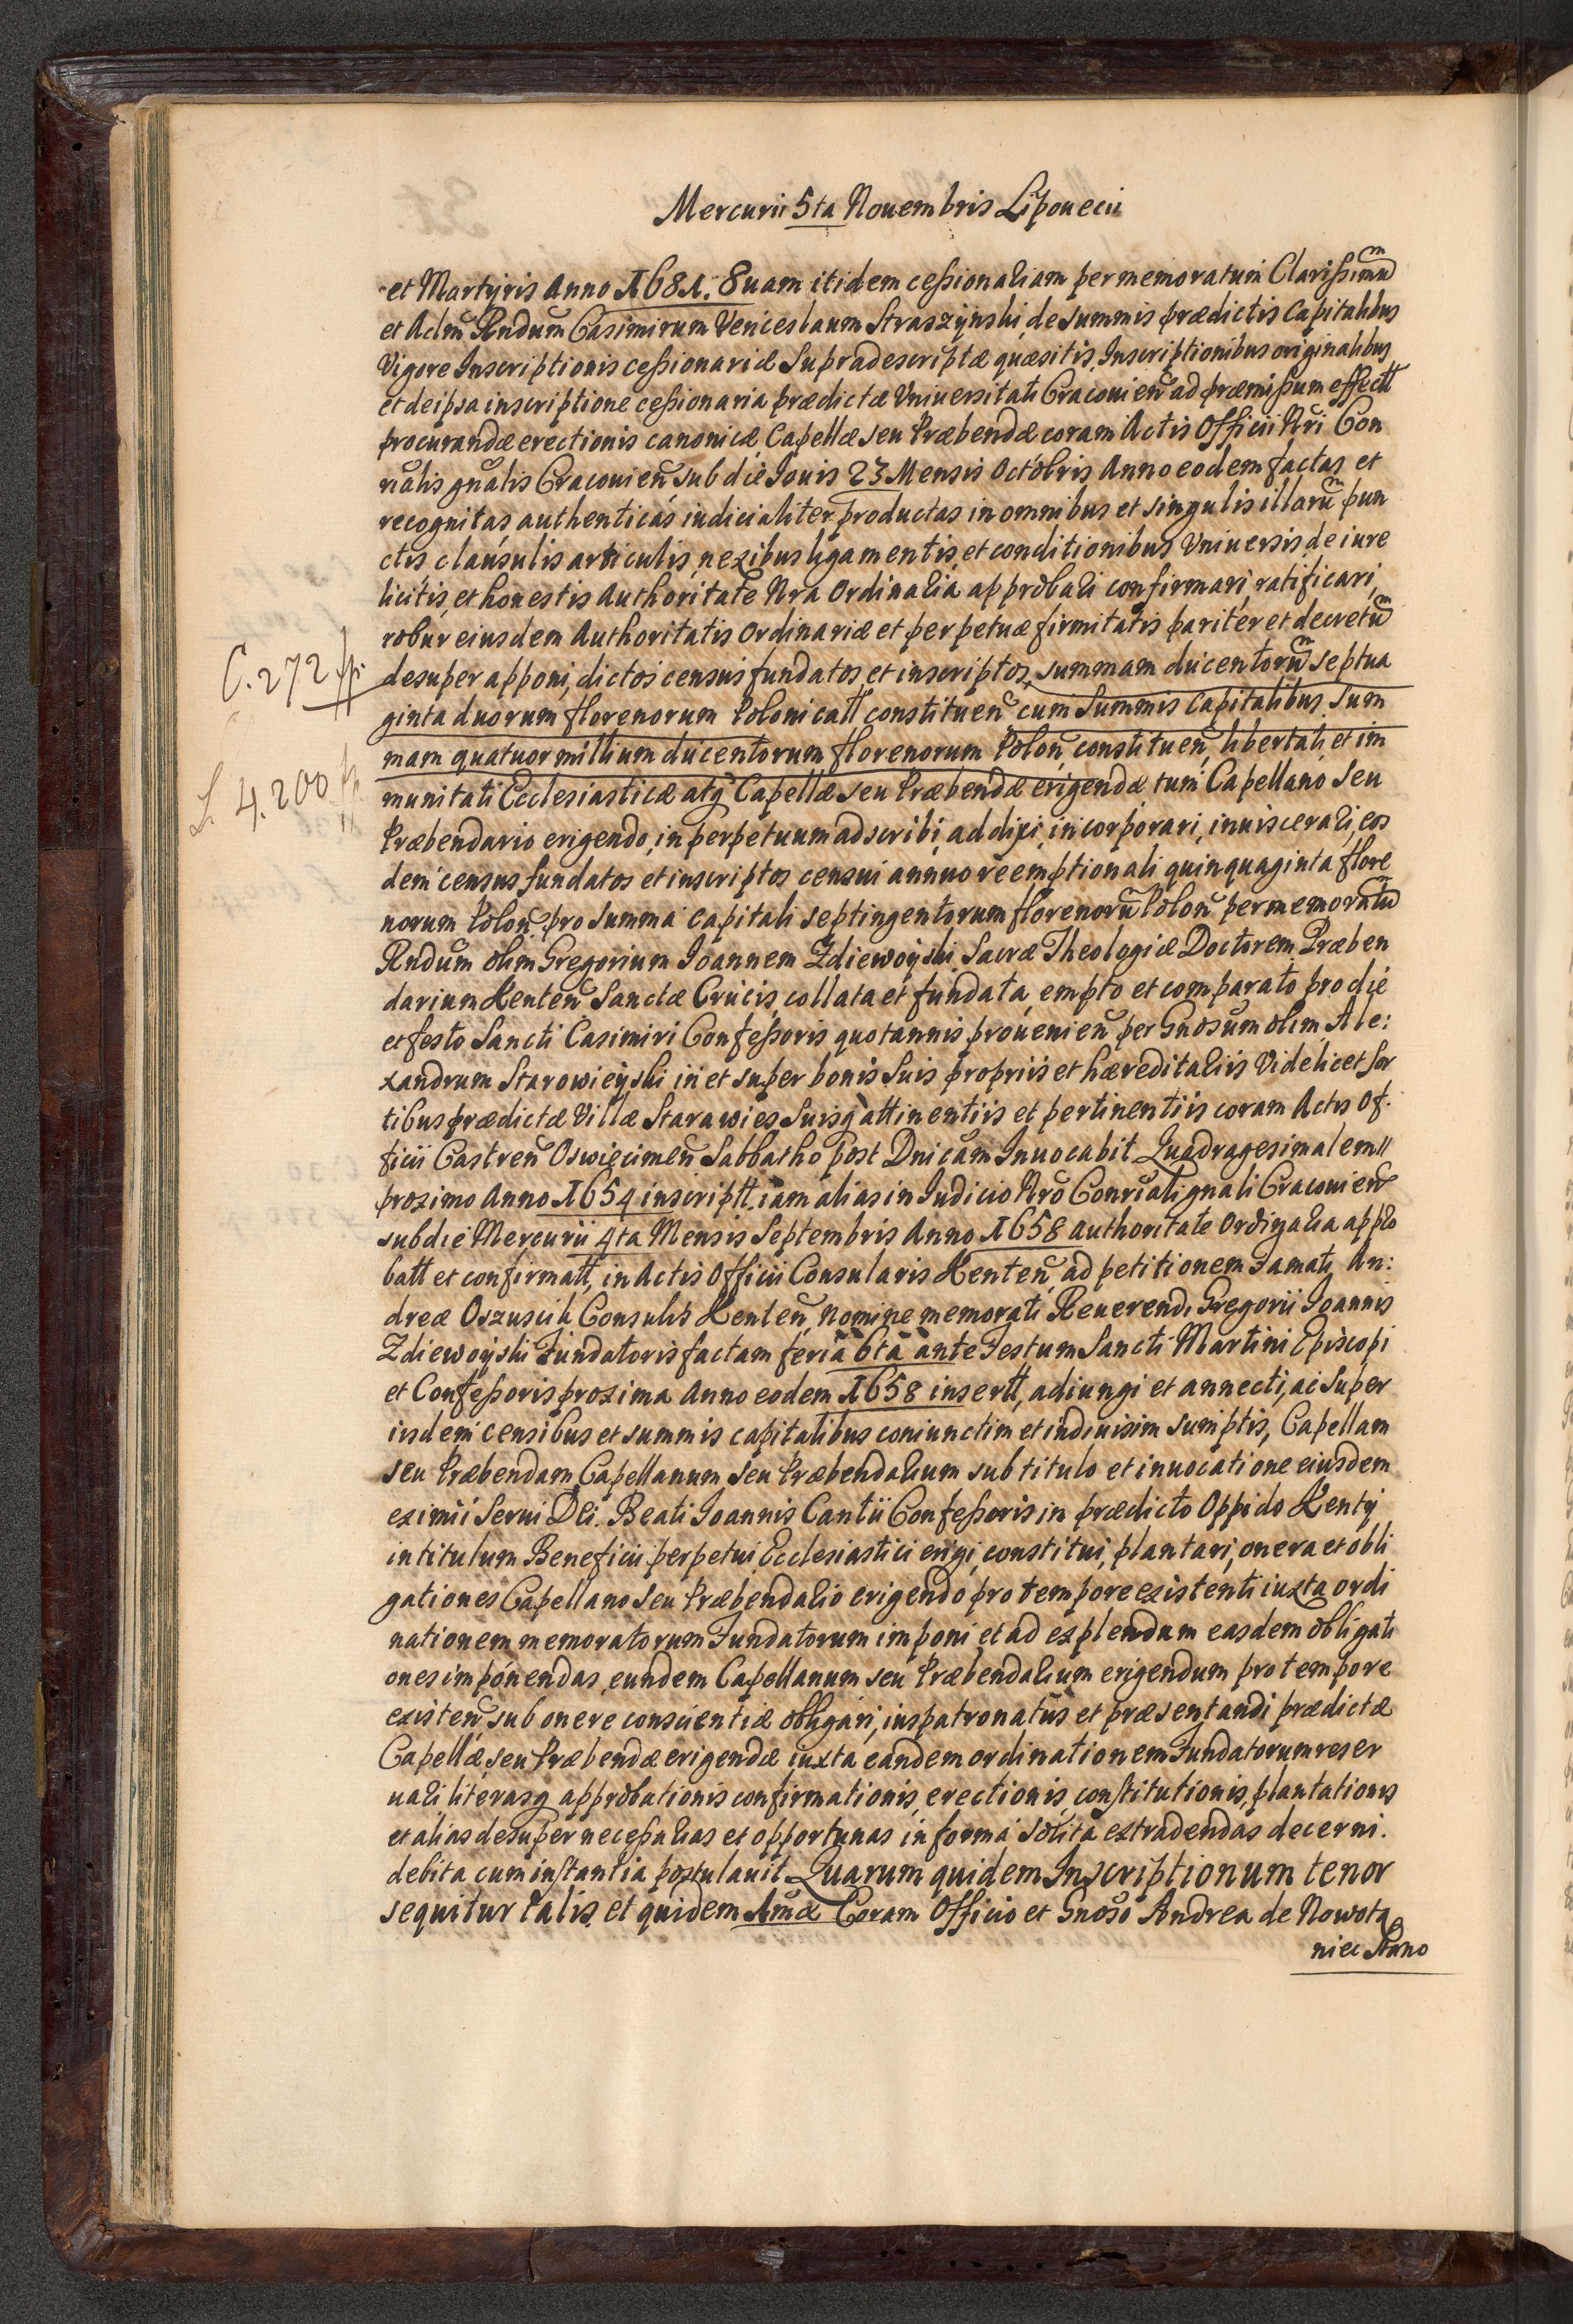 Mercurii 5ta Nouembris Lipouecii
et Martyris Anno 1681. 8uam itidem ceßionariam per memoratum Clarißimũ
et Adm̃ Rndum Casimirum Venceslaum Straszynski, de summis prædictis Capitalibus
Vigore Inscriptionis ceßionariæ Supradescriptæ quæsitis, Inscriptionibus originalibus
et de ipsa inscriptione ceßionaria prædictæ Vniuersitati Cracouien̄ ad præmißum effectū
procurandæ erectionis canonicæ, Capellæ seu Præbendæ coram Actis Officii Nri Con
rialis gnalis Cracouien̄ sub die Iouis 23 Mensis Octobris Anno eodem factas et
recognitas, authenticas iudicialiter productas in omnibus et singulis illarũ pun
ctis clausulis articulis, nexibus ligamentis, et conditionibus Vniuersis de iure
licitis, et honestis Authoritate Nra Ordinaria approbari confirmari, ratificari,
robur eiusdem Authoritatis Ordinariæ et perpetuæ firmitatis pariter et decretũ
C. 272 fp. desuper apponi, dictos census fundatos et inscriptos, summam ducentorũ septua
ginta duorum florenorum Polonicatt constituen̄ cum Summis Capitalibus Sum
mam quatuor millium ducentorum florenorum Polon̄ constituen̄, libertati et im
S. 4.200 fp munitati Ecclesiasticæ atq̃ Capellæ seu Præbendæ erigendæ tum Capellano seu
Præbendario erigendo, in perpetuum adscribi, addici, incorporari, inuiscerari, eos
dem census fundatos et inscriptos censui annuo reemptionali quinquaginta flore
norum Polon̄ pro summa capitali septingentorum florenorũ Polon̄ per memoratũ
Rndum olim Gregorium Ioannem Zdiewoyski Sacræ Theologiæ Doctorem Præben
darium Kenten̄ Sanctæ Crucis, collata et fundata, empto et comparato pro die
et festo Sancti Casimiri Confeßoris quotannis prouenien̄ per Gnosum olim Ale:
xandrum Starowieyski in et super bonis suis propriis et hæreditariis Videlicet sor
tibus prædictæ Villæ Starawies Suisq̃ attinentiis et pertinentiis coram Actis Of:
ficii Castren̄ Oswiecimen̄ Sabbatho post Dnicam Inuocabit Quadragesimalem
proximo Anno 1654 inscriptt. iam alias in Iudicio Nro Conrciali gnali Cracouien̄
sub die Mercurii 4ta Mensis Septembris Anno 1658 authoritate Ordinaria appro
batt et confirmatt, in Actis Officii Consularis Kenten̄, ad petitionem Famati An:
dreæ Oszuscik Consulis Kenten̄, nomine memorati Reuerendi Gregorii Ioannis
Zdiewoyski Fundatoris factam feria 6ta ante Festum Sancti Martini Episcopi
et Confeßoris proxima Anno eodem 1658 insertt, adiungi et annecti, ac super
iisdem censibus et summis capitalibus coniunctim et indiuisim sumptis, Capellam
seu Præbendam, Capellanum seu Præbendarium sub titulo et inuocatione eiusdem
eximii Serui Dei Beati Ioannis Cantii Confeßoris in prædicto Oppido Kenty
in titulum Beneficii perpetui Ecclesiastici erigi, constitui, plantari, onera et obli
gationes Capellano seu Præbendario erigendo pro tempore existenti iuxta ordi
nationem memoratorum Fundatorum imponi et ad explendum easdem obligati
ones imponendas, eundem Capellanum seu Præbendarium erigendum pro tempore
existen̄ sub onere conscientiæ obligari, ius patronatus et præsentandi prædictæ
Capellæ, seu Præbendæ erigendæ iuxta eandem ordinationem Fundatorum reser
uari literasq̃ approbationis confirmationis, erectionis, constitutionis, plantationis
et alias desuper neceßarias et opportunas in forma solita extradendas decerni.
debita cum instantia postulauit. Quarum quidem Inscriptionum tenor
sequitur talis, et quidem 1mæ Coram Officio et Gnoso Andrea de Nowota
niec Stano